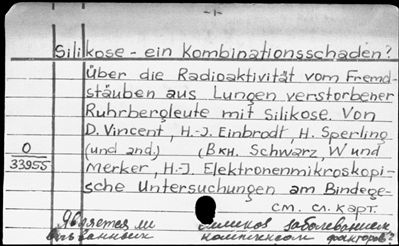 -1-
Silikose - ein Kombinationsschaden?
Über die Radioaktivität vom Fremd-
stäuben aus Lungen verstorbener
Ruhrbergleute mit Silikose. Von
D. Vincent, H.-J. Einbrodt, H. Sperling
O
(und and.) (Вкн. Schwarz, W und
33955
Merker, H.-J. Elektronenmikroskopi-
sche Untersuchungen am Bindege-
см. сл. карт.
Является ли силикоз заболеванием
факторов?